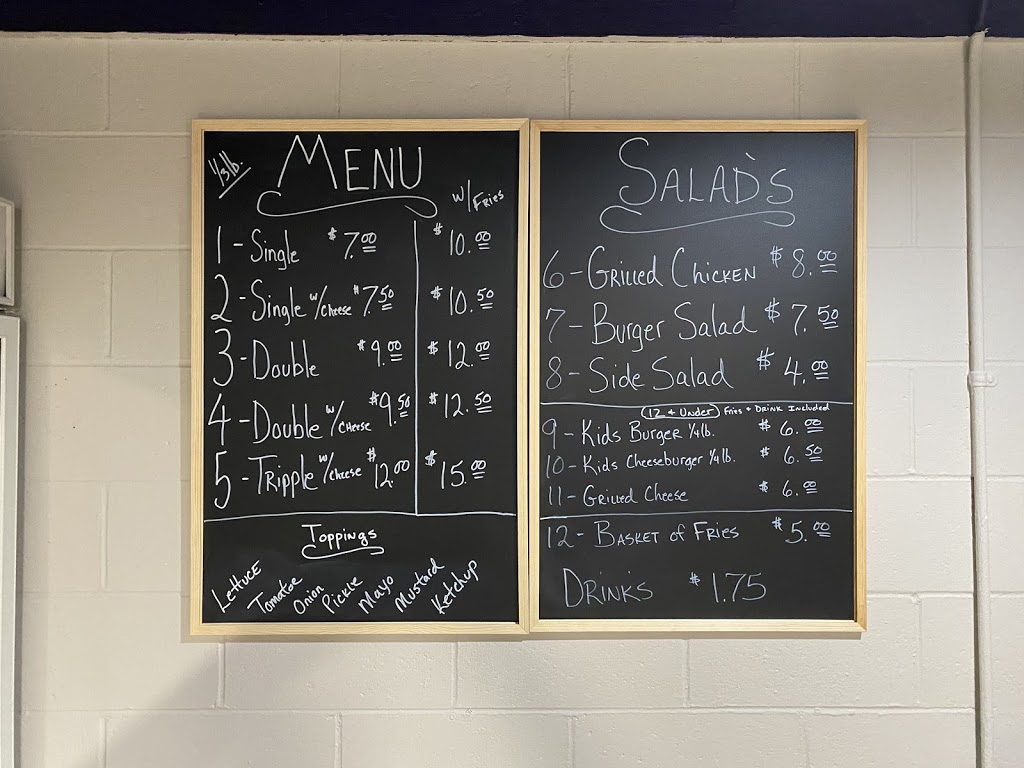 1/3 lb.
MENU
w/ Fries
1 - Single $7.00 $10.00
2 - Single w/Cheese $7.50 $10.50
3 - Double $9.00 $12.00
4 - Double w/Cheese $9.50 $12.50
5 - Tripple w/Cheese $12.00 $15.00
Toppings
Lettuce Tomatoe Onion Pickle Mayo Mustard Ketchup
SALAD'S
6 - Grilled Chicken $8.00
7 - Burger Salad $7.50
8 - Side Salad $4.00
(12 + Under) Fries + Drink Included
9 - Kids Burger 1/4 lb. $6.00
10 - Kids Cheeseburger 1/4 lb. $6.50
11 - Grilled Cheese $6.00
12 - Basket of Fries $5.00
Drinks $1.75